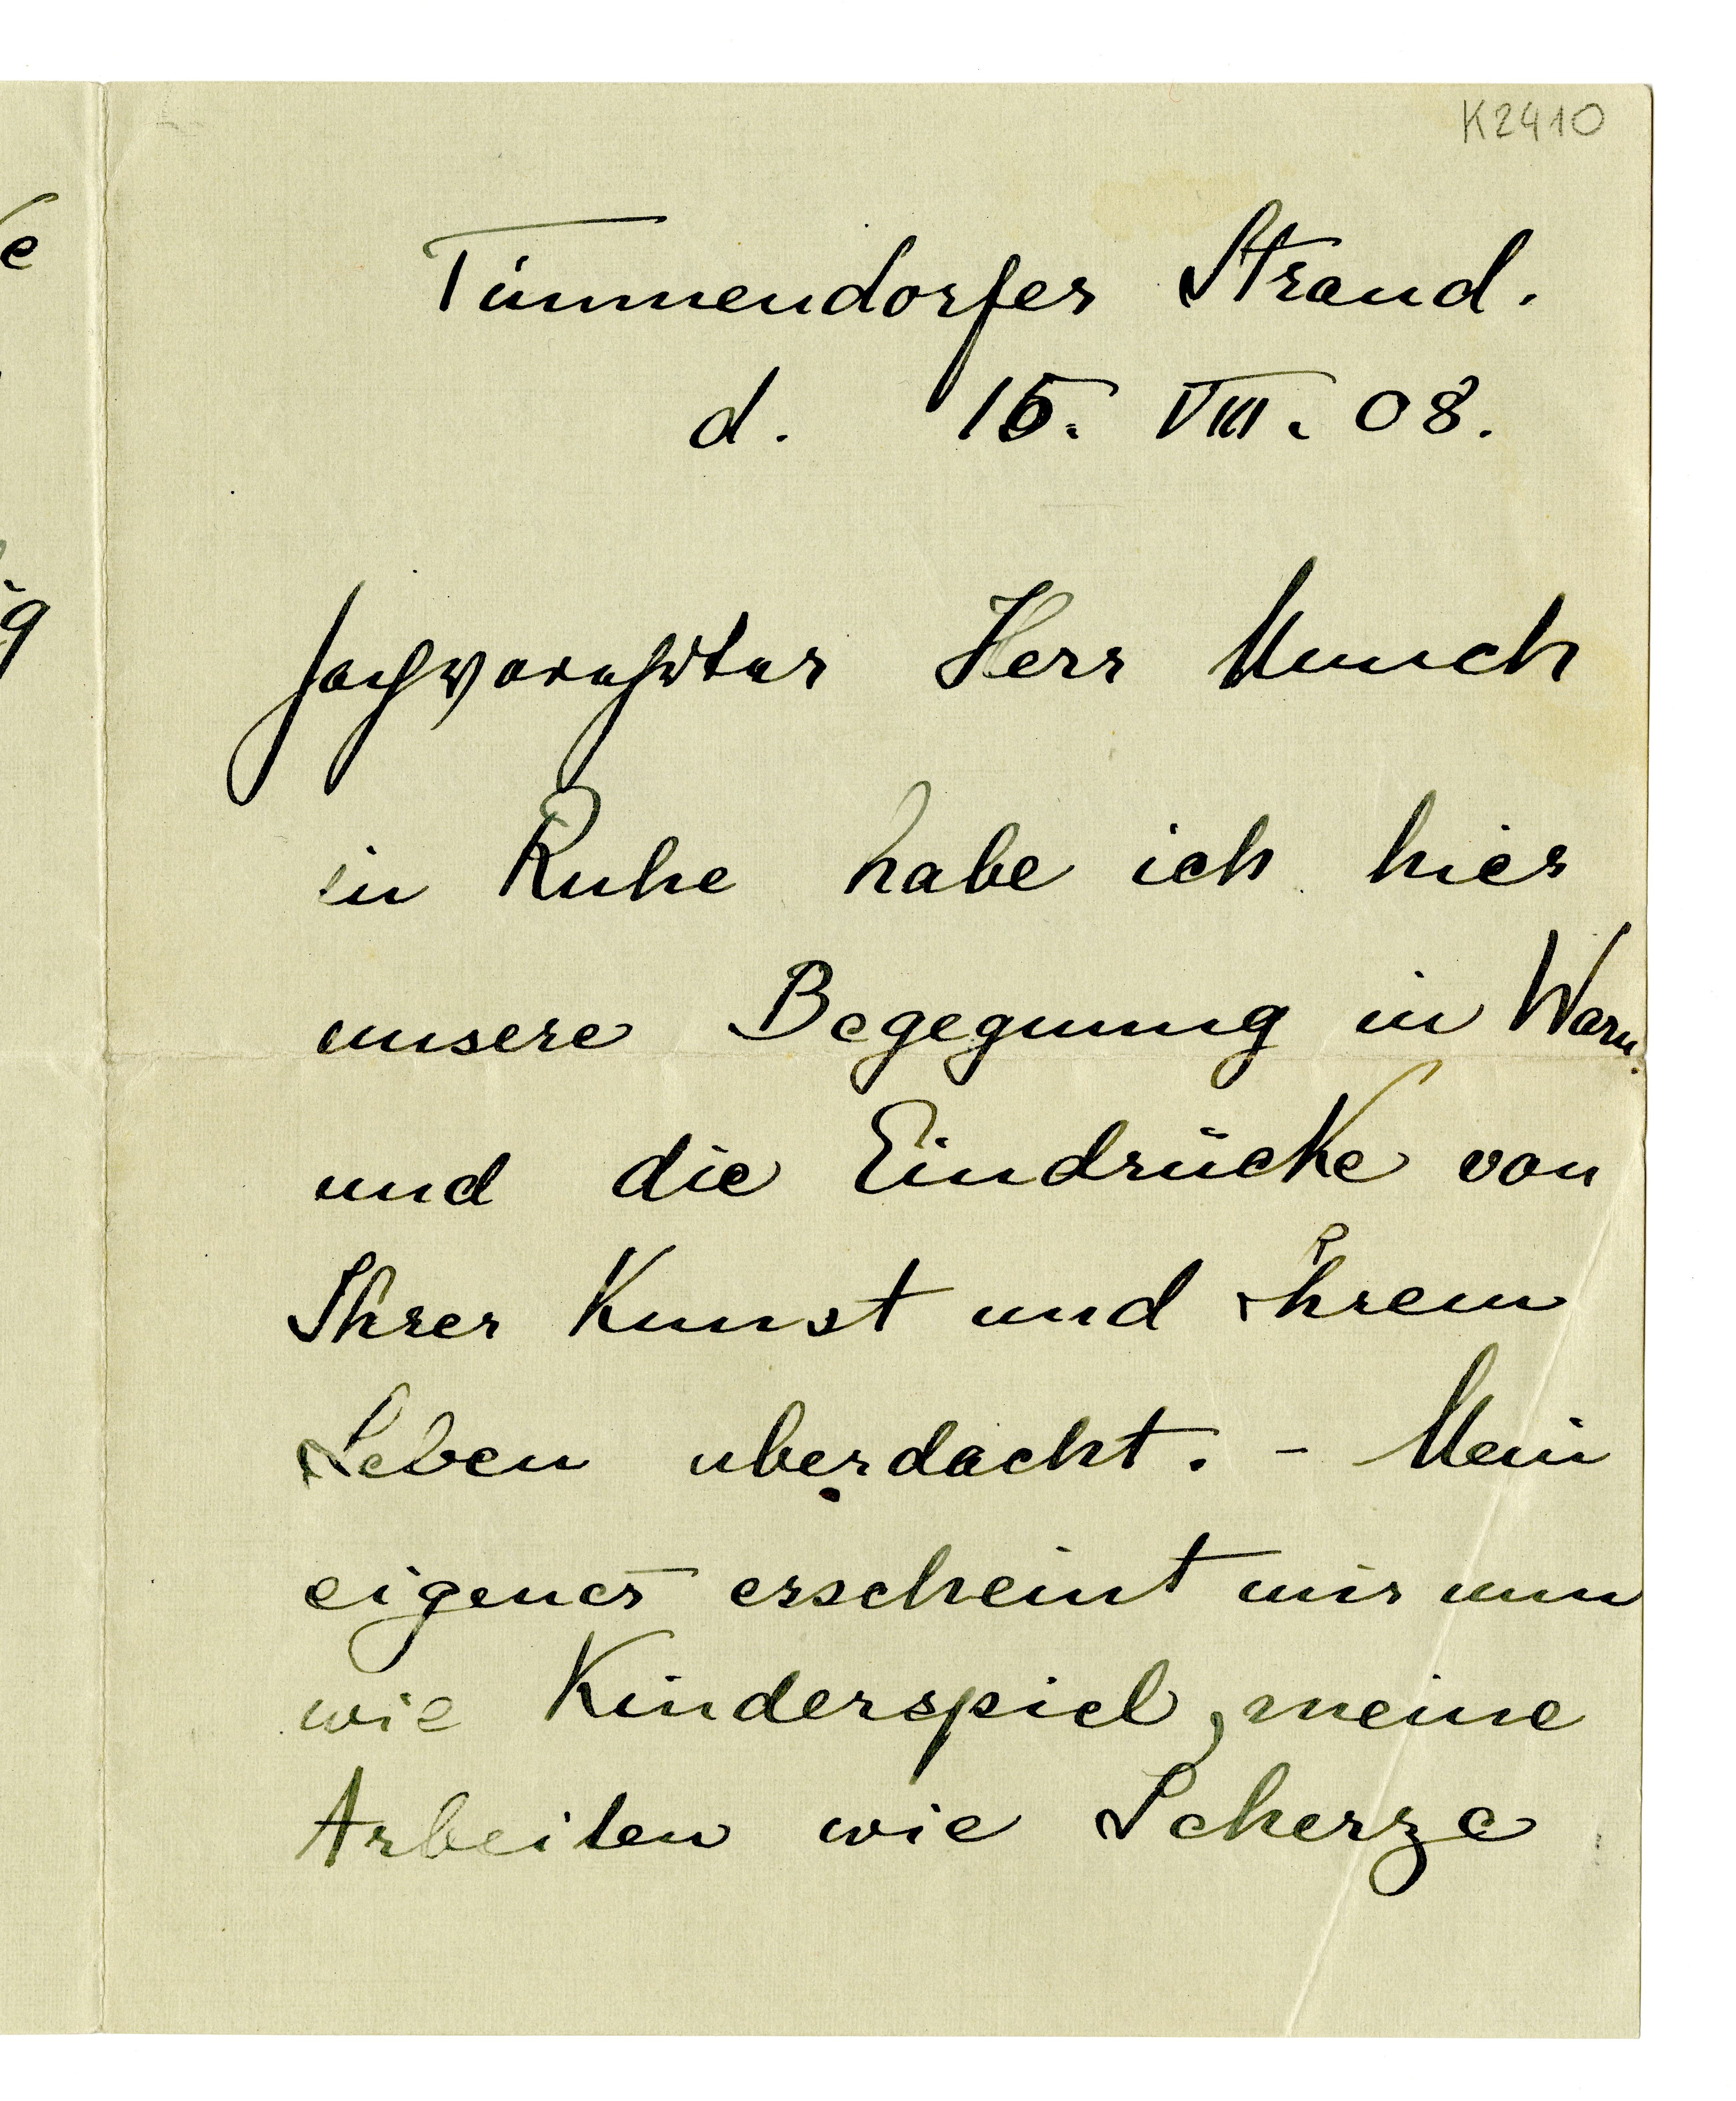 K2410
Timmendorfer Strand.
d. 15. VIII. 08.
hochverehrter Herr Munch
in Ruhe habe ich hier
unsere Begegnung in Warn.
und die Eindrücke von
Ihrer Kunst und Ihrem
Leben uberdacht. - Mein
eigenes erscheint mir nun
wie Kinderspiel, meine
Arbeiten wie Scherze